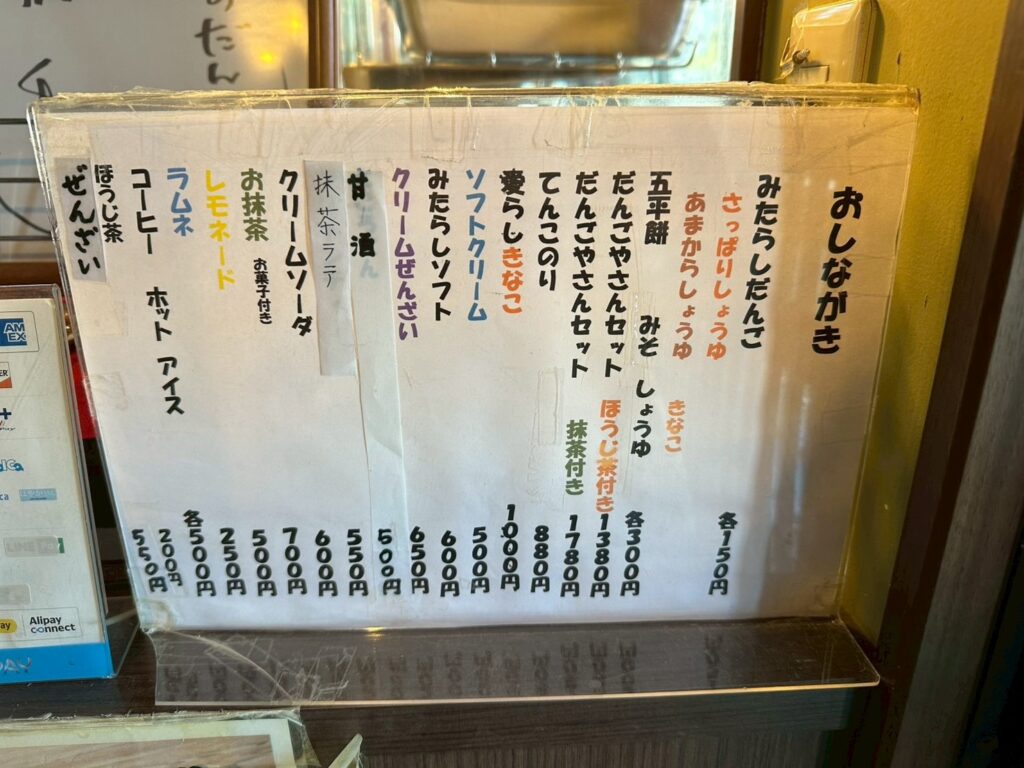 おしながき
みたらしだんご
さっぱりしょうゆ 各150円
あまからしょうゆ きなこ
五平餅 みそ しょうゆ 各300円
だんごやさんセット ほうじ茶付き 1380円
だんごやさんセット 抹茶付き 1780円
てんこのり 880円
愛らしきなこ 1000円
ソフトクリーム 500円
みたらしソフト 600円
クリームぜんざい 650円
甘酒 500円
抹茶ラテ 550円
クリームソーダ 600円
お抹茶 お菓子付き 700円
レモネード 500円
ラムネ 250円
コーヒー ホット アイス 各500円
ほうじ茶 200円
ぜんざい 550円
だん
AM
EX
LINE
Alipay
connect